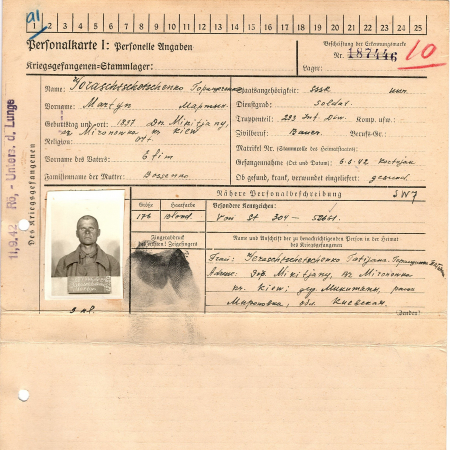 a1
1 2 3 4 5 6 7 8 9 10 11 12 13 14 15 16 17 18 19 20 21 22 23 24 25
Personalkarte I: Personelle Angaben
Beschriftung der Erkennungsmarke
Nr. 187446
10
Kriegsgefangenen-Stammlager:
Lager:
Des Kriegsgefangenen
11.9.42 Rö.-Unters. d. Lunge
Name:
Staatsangehörigkeit: SSSR
Vorname: Martyn Мартын
Dienstgrad: Soldat
Geburtstag und -ort: 1897 Mikitjany,
Truppenteil: 293 Inf. Div. Komp. usw.:
Mironowka Kiew
Zivilberuf: Bauer Berufs-Gr.:
Religion:
Matrikel Nr. (Stammrolle des Heimatstaates):
Vorname des Vaters: Efim
Gefangennahme (Ort und Datum): 6.6.42
Familienname der Mutter: Dozenko
Ob gesund, krank, verwundet eingeliefert: gesund
Nähere Personalbeschreibung
Größe Haarfarbe Besondere Kennzeichen:
176 Blond. Von St 304
Fingerabdruck
des rechten Zeigefingers
Name und Anschrift der zu benachrichtigenden Person in der Heimat
des Kriegsgefangenen
Frau: Tatjana
Adresse: Mikitjany, Mironowka
Kiew; дер. Микитяны, район
Мироновка, обл. Киевская
(Wenden!)